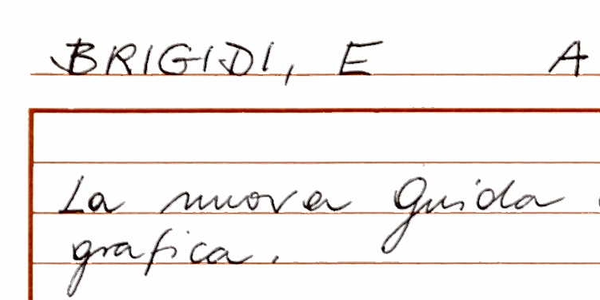 BRIGIDI, E A
La nuova Guida
grafica.